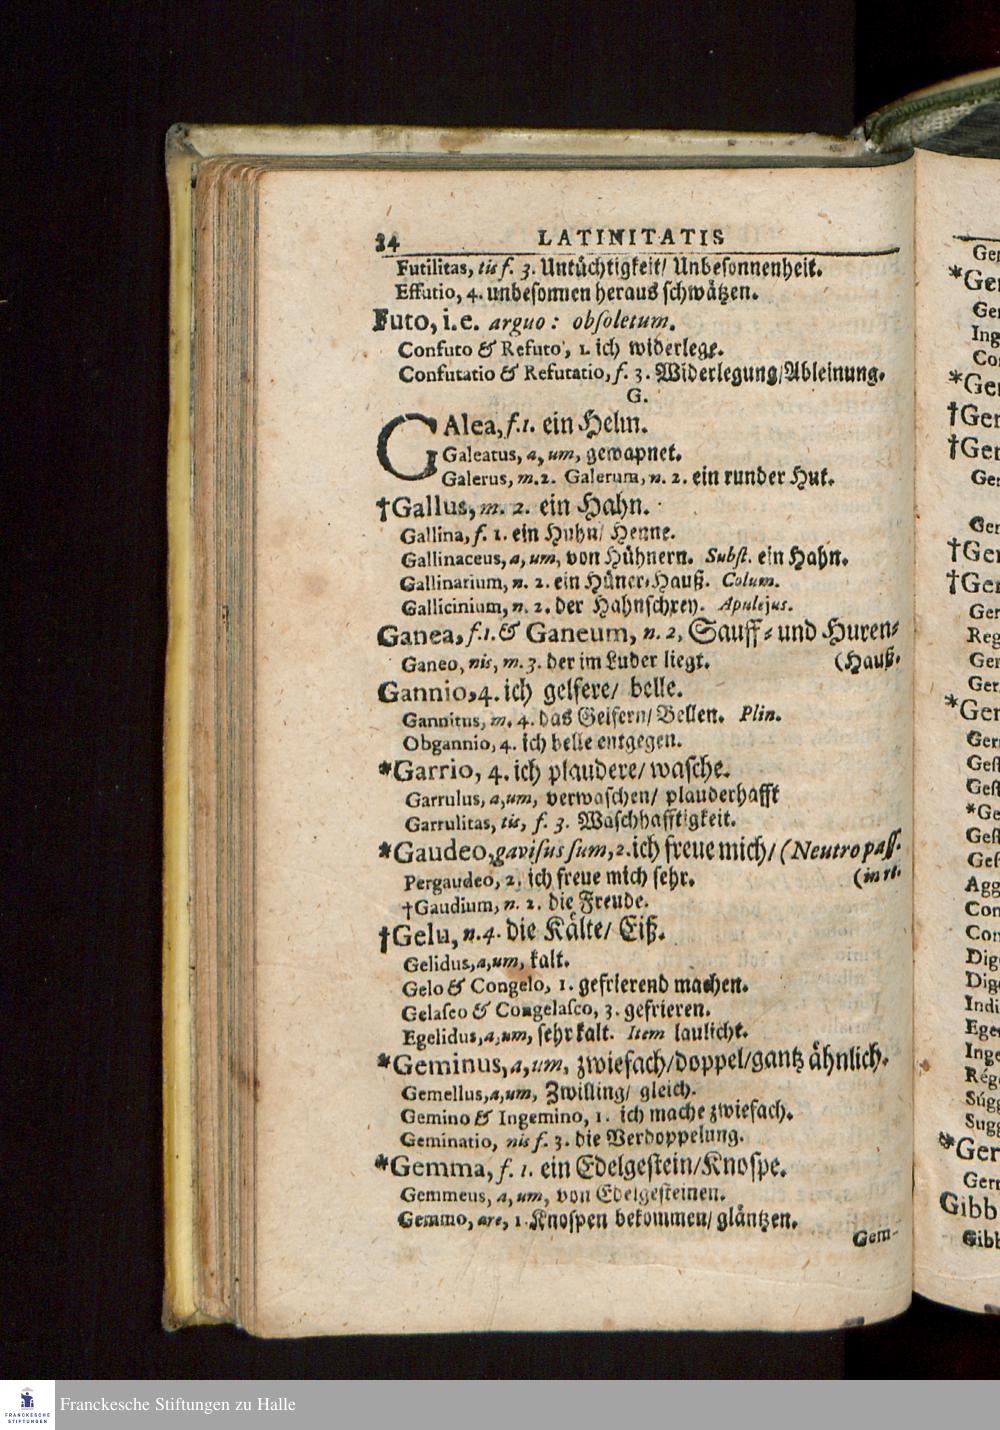 34 LATINITATIS
Futilitas, tis f. 3. Untüchtigkeit/ Unbesonnenheit.
Effutio, 4. unbesonnen heraus schwätzen.
Futo, i.e. arguo: obsoletum.
Confuto & Refuto, 1. ich widerlege.
Confutatio & Refutatio, f. 3. Widerlegung/Ableinung.
G.
GAlea, f.1. ein Helm.
Galeatus, a, um, gewapnet.
Galerus, m.2. Galerum, n. 2. ein runder Hut.
†Gallus, m. 2. ein Hahn.
Gallina, f. 1. ein Huhn/ Henne.
Gallinaceus, a, um, von Hühnern. Subst. ein Hahn.
Gallinarium, n. 2. ein Hüner-Hauß. Colum.
Gallicinium, n. 2. der Hahnschrey. Apulejus.
Ganea, f.1. & Ganeum, n. 2, Sauff- und Huren-
Ganeo, nis, m. 3. der im Luder liegt. (Hauß.
Gannio, 4. ich gelfere/ belle.
Gannitus, m. 4. das Geifern/ Bellen. Plin.
Obgannio, 4. ich belle entgegen.
*Garrio, 4. ich plaudere/ wasche.
Garrulus, a, um, verwaschen/ plauderhafft
Garrulitas, tis, f. 3. Waschhafftigkeit.
*Gaudeo, gavisus sum, 2. ich freue mich/ (Neutro pass.
Pergaudeo, 2. ich freue mich sehr.
†Gaudium, n. 2. die Freude.
†Gelu, n.4. die Kälte/ Eiß.
Gelidus, a, um, kalt.
Gelo & Congelo, 1. gefrierend machen.
Gelasco & Congelasco, 3. gefrieren.
Egelidus, a, um, sehr kalt. Item laulicht.
*Geminus, a, um, zwiefach/doppel/gantz ähnlich.
Gemellus, a, um, Zwilling/ gleich.
Gemino & Ingemino, 1. ich mache zwiefach.
Geminatio, nis f. 3. die Verdoppelung.
*Gemma, f. 1. ein Edelgestein/Knospe.
Gemmeus, a, um, von Edelgesteinen.
Gemmo, are, 1. Knospen bekommen/ gläntzen.
Gem-
*Ger
†Ger
†Ger
*Ger
Gibb
Gibb
FRANCKESCHE
STIFTUNGEN
Franckesche Stiftungen zu Halle